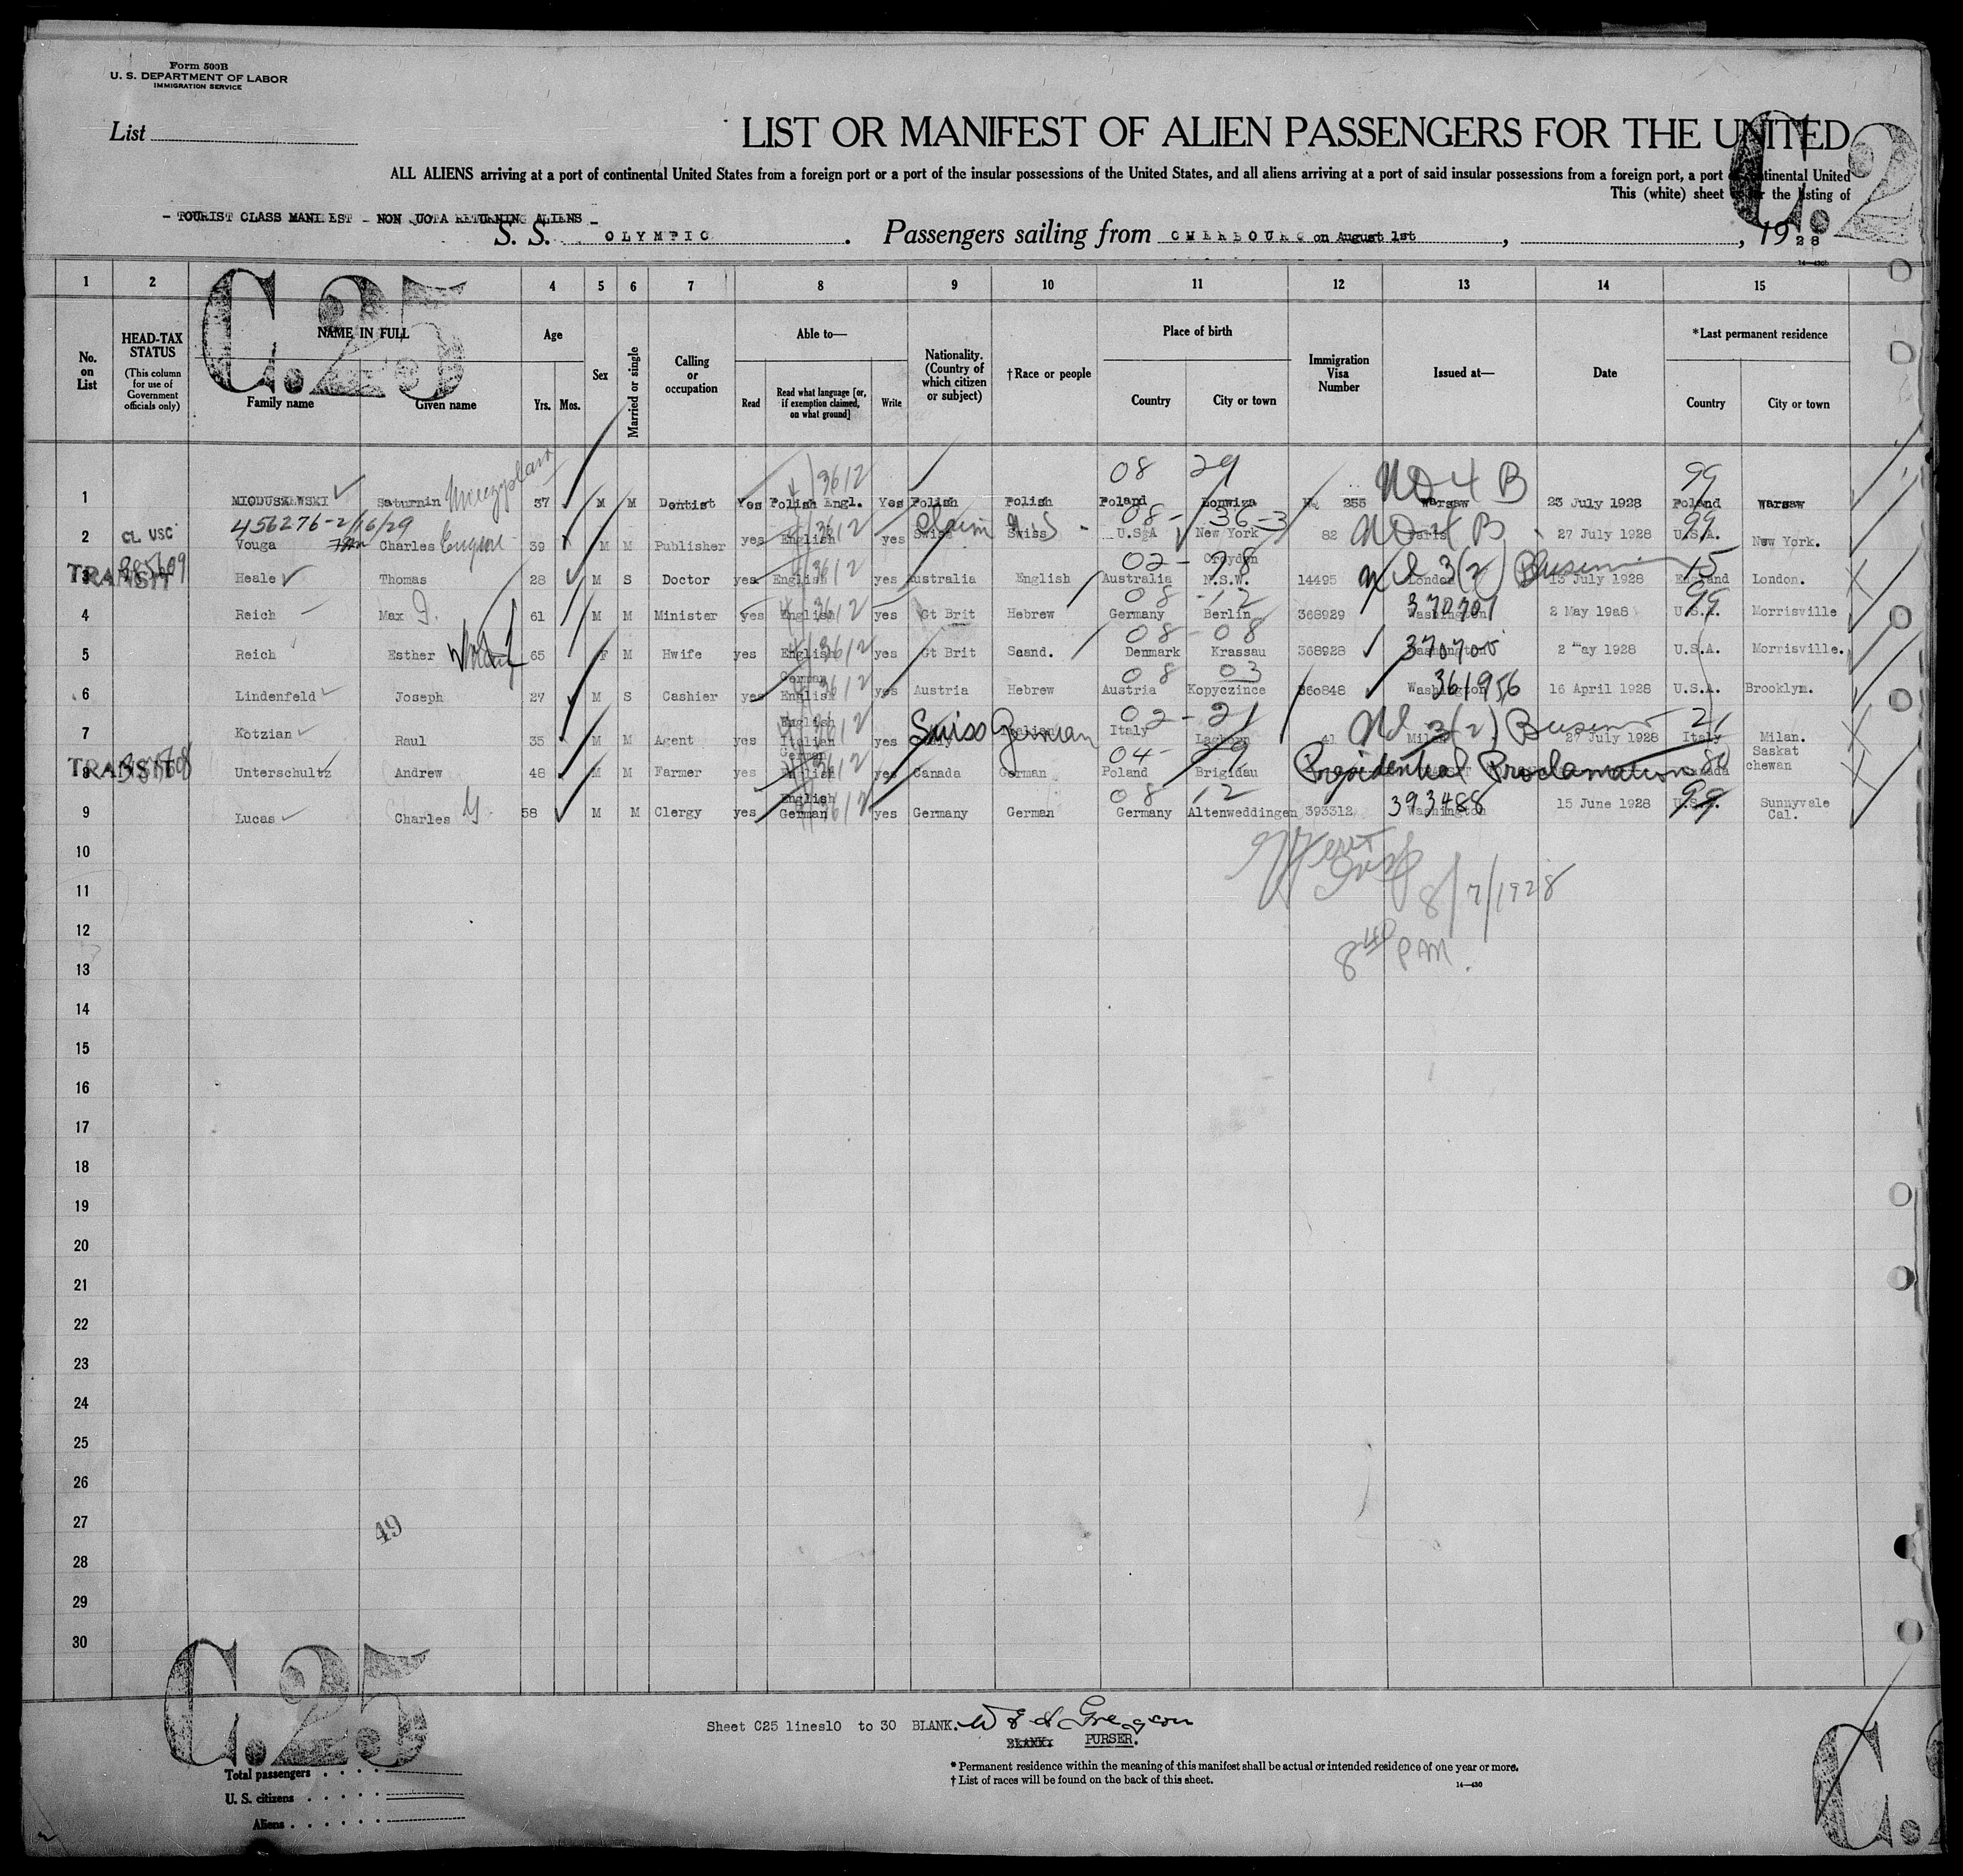 Form 500B
U. S. DEPARTMENT OF LABOR
IMMIGRATION SERVICE
List
LIST OR MANIFEST OF ALIEN PASSENGERS FOR THE UNITED
C.2
ALL ALIENS arriving at a port of continental United States from a foreign port or a port of the insular possessions of the United States, and all aliens arriving at a port of said insular possessions from a foreign port, a port of continental United
This (white) sheet is for the listing of
- TOURIST CLASS MANIFEST - NON QUOTA RETURNING ALIENS -
S. S. OLYMPIC. Passengers sailing from CHERBOURG on August 1st, , 1928
1 2 4 5 6 7 8 9 10 11 12 13 14 15
C.25
No. on List
HEAD-TAX STATUS
(This column for use of Government officials only)
NAME IN FULL
Family name Given name
Age
Yrs. Mos.
Sex
Married or single
Calling or occupation
Able to—
Read
Read what language [or, if exemption claimed, on what ground]
Write
Nationality. (Country of which citizen or subject)
†Race or people
Place of birth
Country City or town
Immigration Visa Number
Issued at—
Date
*Last permanent residence
Country City or town
08 29 ND 4 B 99
1 MIODUSZEWSKI Saturnin 37 M M Dentist Yes Polish Engl. 3612 Yes Polish Polish Poland 255 Warsaw 23 July 1928 Poland Warsaw
456276-2/16/29
2 CL USC Vouga Charles Eugene 39 M M Publisher yes English 3612 yes Swiss Swiss U.S.A New York 82 Paris 27 July 1928 U.S.A. New York.
3 TRANSIT Heale Thomas 28 M S Doctor yes English 3612 yes Australia English Australia Croydon N.S.W. 14495 London 3(2) Business 13 July 1928 England London.
4 Reich Max 61 M M Minister yes English 3612 yes Gt Brit Hebrew Germany Berlin 368929 Washington 370701 2 May 1928 U.S.A. Morrisville
5 Reich Esther 65 F M Hwife yes English 3612 yes Gt Brit Scand. Denmark Krassau 368928 Washington 370700 2 May 1928 U.S.A. Morrisville.
6 Lindenfeld Joseph 27 M S Cashier yes German English 3612 yes Austria Hebrew Austria Kopyczince 360848 Washington 361956 16 April 1928 U.S.A. Brooklyn.
7 Kotzian Raul 35 M M Agent yes English Italian 3612 yes Swiss German Italy Leghorn 41 Milan 3(2) Business 27 July 1928 Italy Milan.
8 TRANSIT Unterschultz Andrew 48 M M Farmer yes German English 3612 yes Canada German Poland Brigidau Presidential Proclamation Canada Saskat chewan
9 Lucas Charles G. 58 M M Clergy yes English German 3612 yes Germany German Germany Altenweddingen 393312 Washington 393488 15 June 1928 U.S.A. Sunnyvale Cal.
10
11
8/7/1928
12
PM.
13
14
15
16
17
18
19
20
21
22
23
24
25
26
27
49
28
29
30
C.25
Sheet C25 lines10 to 30 BLANK.
PURSER.
Total passengers
U. S. citizens
Aliens
* Permanent residence within the meaning of this manifest shall be actual or intended residence of one year or more.
† List of races will be found on the back of this sheet.
14—430
C.